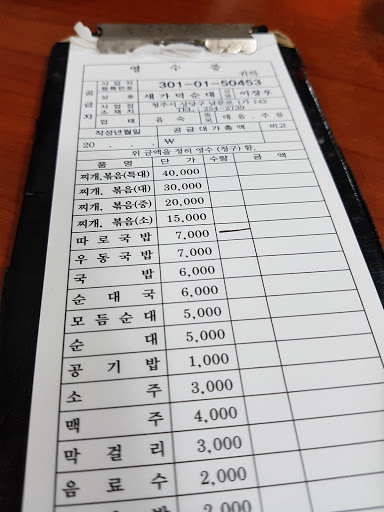 영 수 증
귀하
공급자 사업자등록번호 301-01-50453
상호 새가덕순대 성명 이장우
사업장소재지 청주시 상당구 남문로1가 142
TEL. 254-2739
업태 음 속 종목 대음, 주류
작성년월일 공급대가총액 비고
20 . . ₩
위 금액을 정히 영수 (청구) 함.
품 명 단 가 수량 금 액
찌개.볶음(특대) 40,000
찌개, 볶음(대) 30,000
찌개, 볶음(중) 20,000
찌개, 볶음(소) 15,000
따로국밥 7,000
우동국밥 7,000
국 밥 6,000
순 대 국 6,000
모듬순대 5,000
순 대 5,000
공 기 밥 1,000
소 주 3,000
맥 주 4,000
막 걸 리 3,000
음 료 수 2,000
2,000